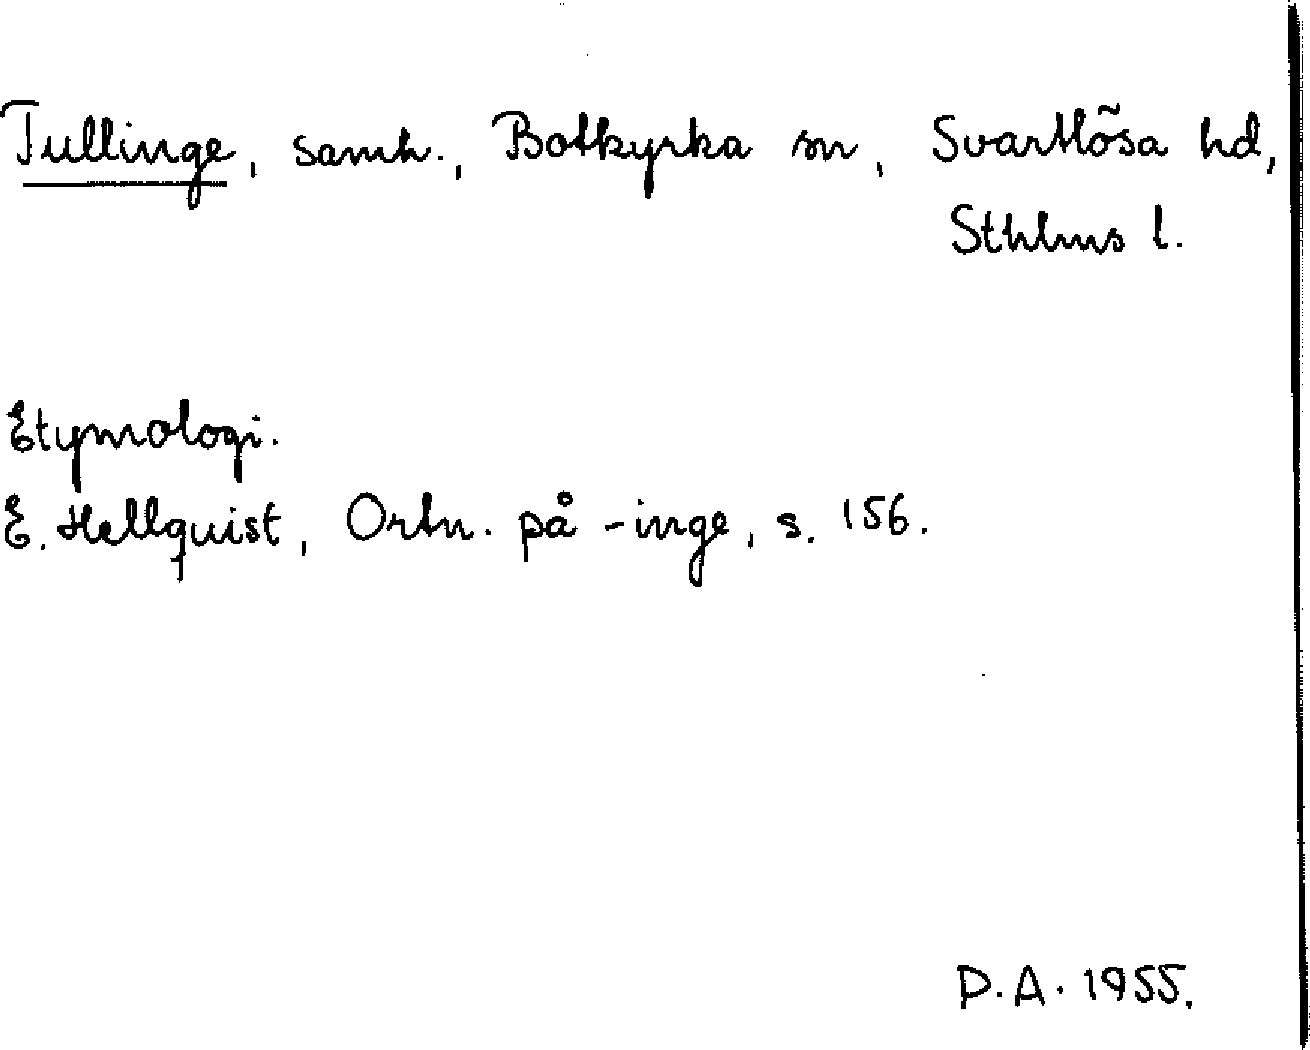 Tullinge, samh., Botkyrka sn, Svartlösa hd,
Sthlms l.
Etymologi.
E. Hellquist, Ortn. på -inge, s. 156.
D.A. 1955.